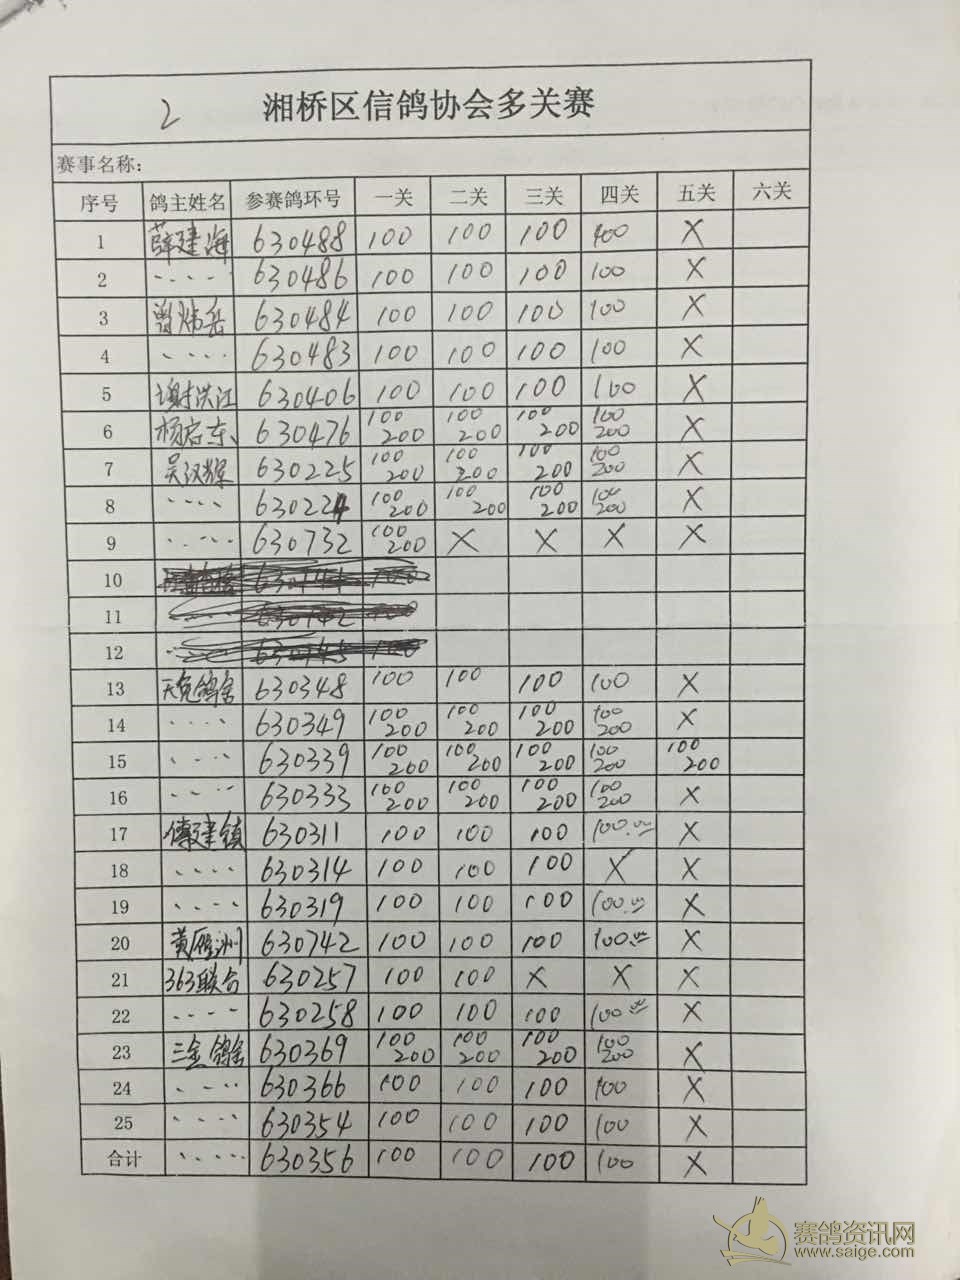 2 湘桥区信鸽协会多关赛
赛事名称:
序号 鸽主姓名 参赛鸽环号 一关 二关 三关 四关 五关 六关
1 薛建海 630488 100 100 100 100 X
2 、、、、 630486 100 100 100 100 X
3 曾炜岳 630484 100 100 100 100 X
4 、、、、 630483 100 100 100 100 X
5 谢洪江 630406 100 100 100 100 X
6 杨启东 630476 100 200 100 200 100 200 100 200 X
7 吴汉辉 630225 100 200 100 200 100 200 100 200 X
8 、、、、 630224 100 200 100 200 100 200 100 200 X
9 、、、、 630732 100 200 X X X X
10
11
12
13 天宽鸽舍 630348 100 100 100 100 X
14 、、、、 630349 100 200 100 200 100 200 100 200 X
15 、、、、 630339 100 200 100 200 100 200 100 200 100 200
16 、、、、 630333 100 200 100 200 100 200 100 200 X
17 傅建镇 630311 100 100 100 100.00 X
18 、、、、 630314 100 100 100 X X
19 、、、、 630319 100 100 100 100.00 X
20 黄雁洲 630742 100 100 100 100.00 X
21 363联合 630257 100 100 X X X
22 、、、、 630258 100 100 100 100.00 X
23 三金鸽舍 630369 100 200 100 200 100 200 100 200 X
24 、、、、 630366 100 100 100 100 X
25 、、、、 630354 100 100 100 100 X
合计 、、、、 630356 100 100 100 100 X
赛鸽资讯网
www.saige.com